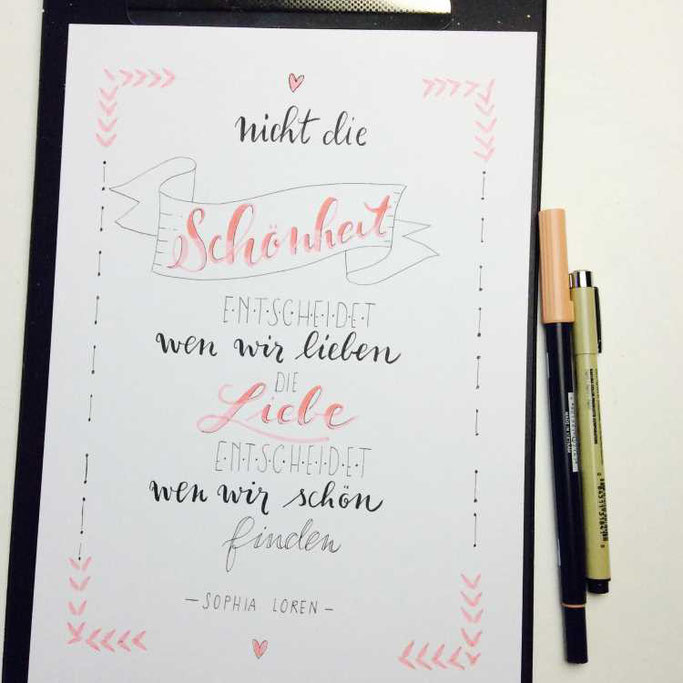 nicht die
Schönheit
E·N·T·S·C·H·E·I·D·E·T
wen wir lieben
DIE
Liebe
E·N·T·S·C·H·E·I·D·E·T
wen wir schön
finden
— SOPHIA LOREN —